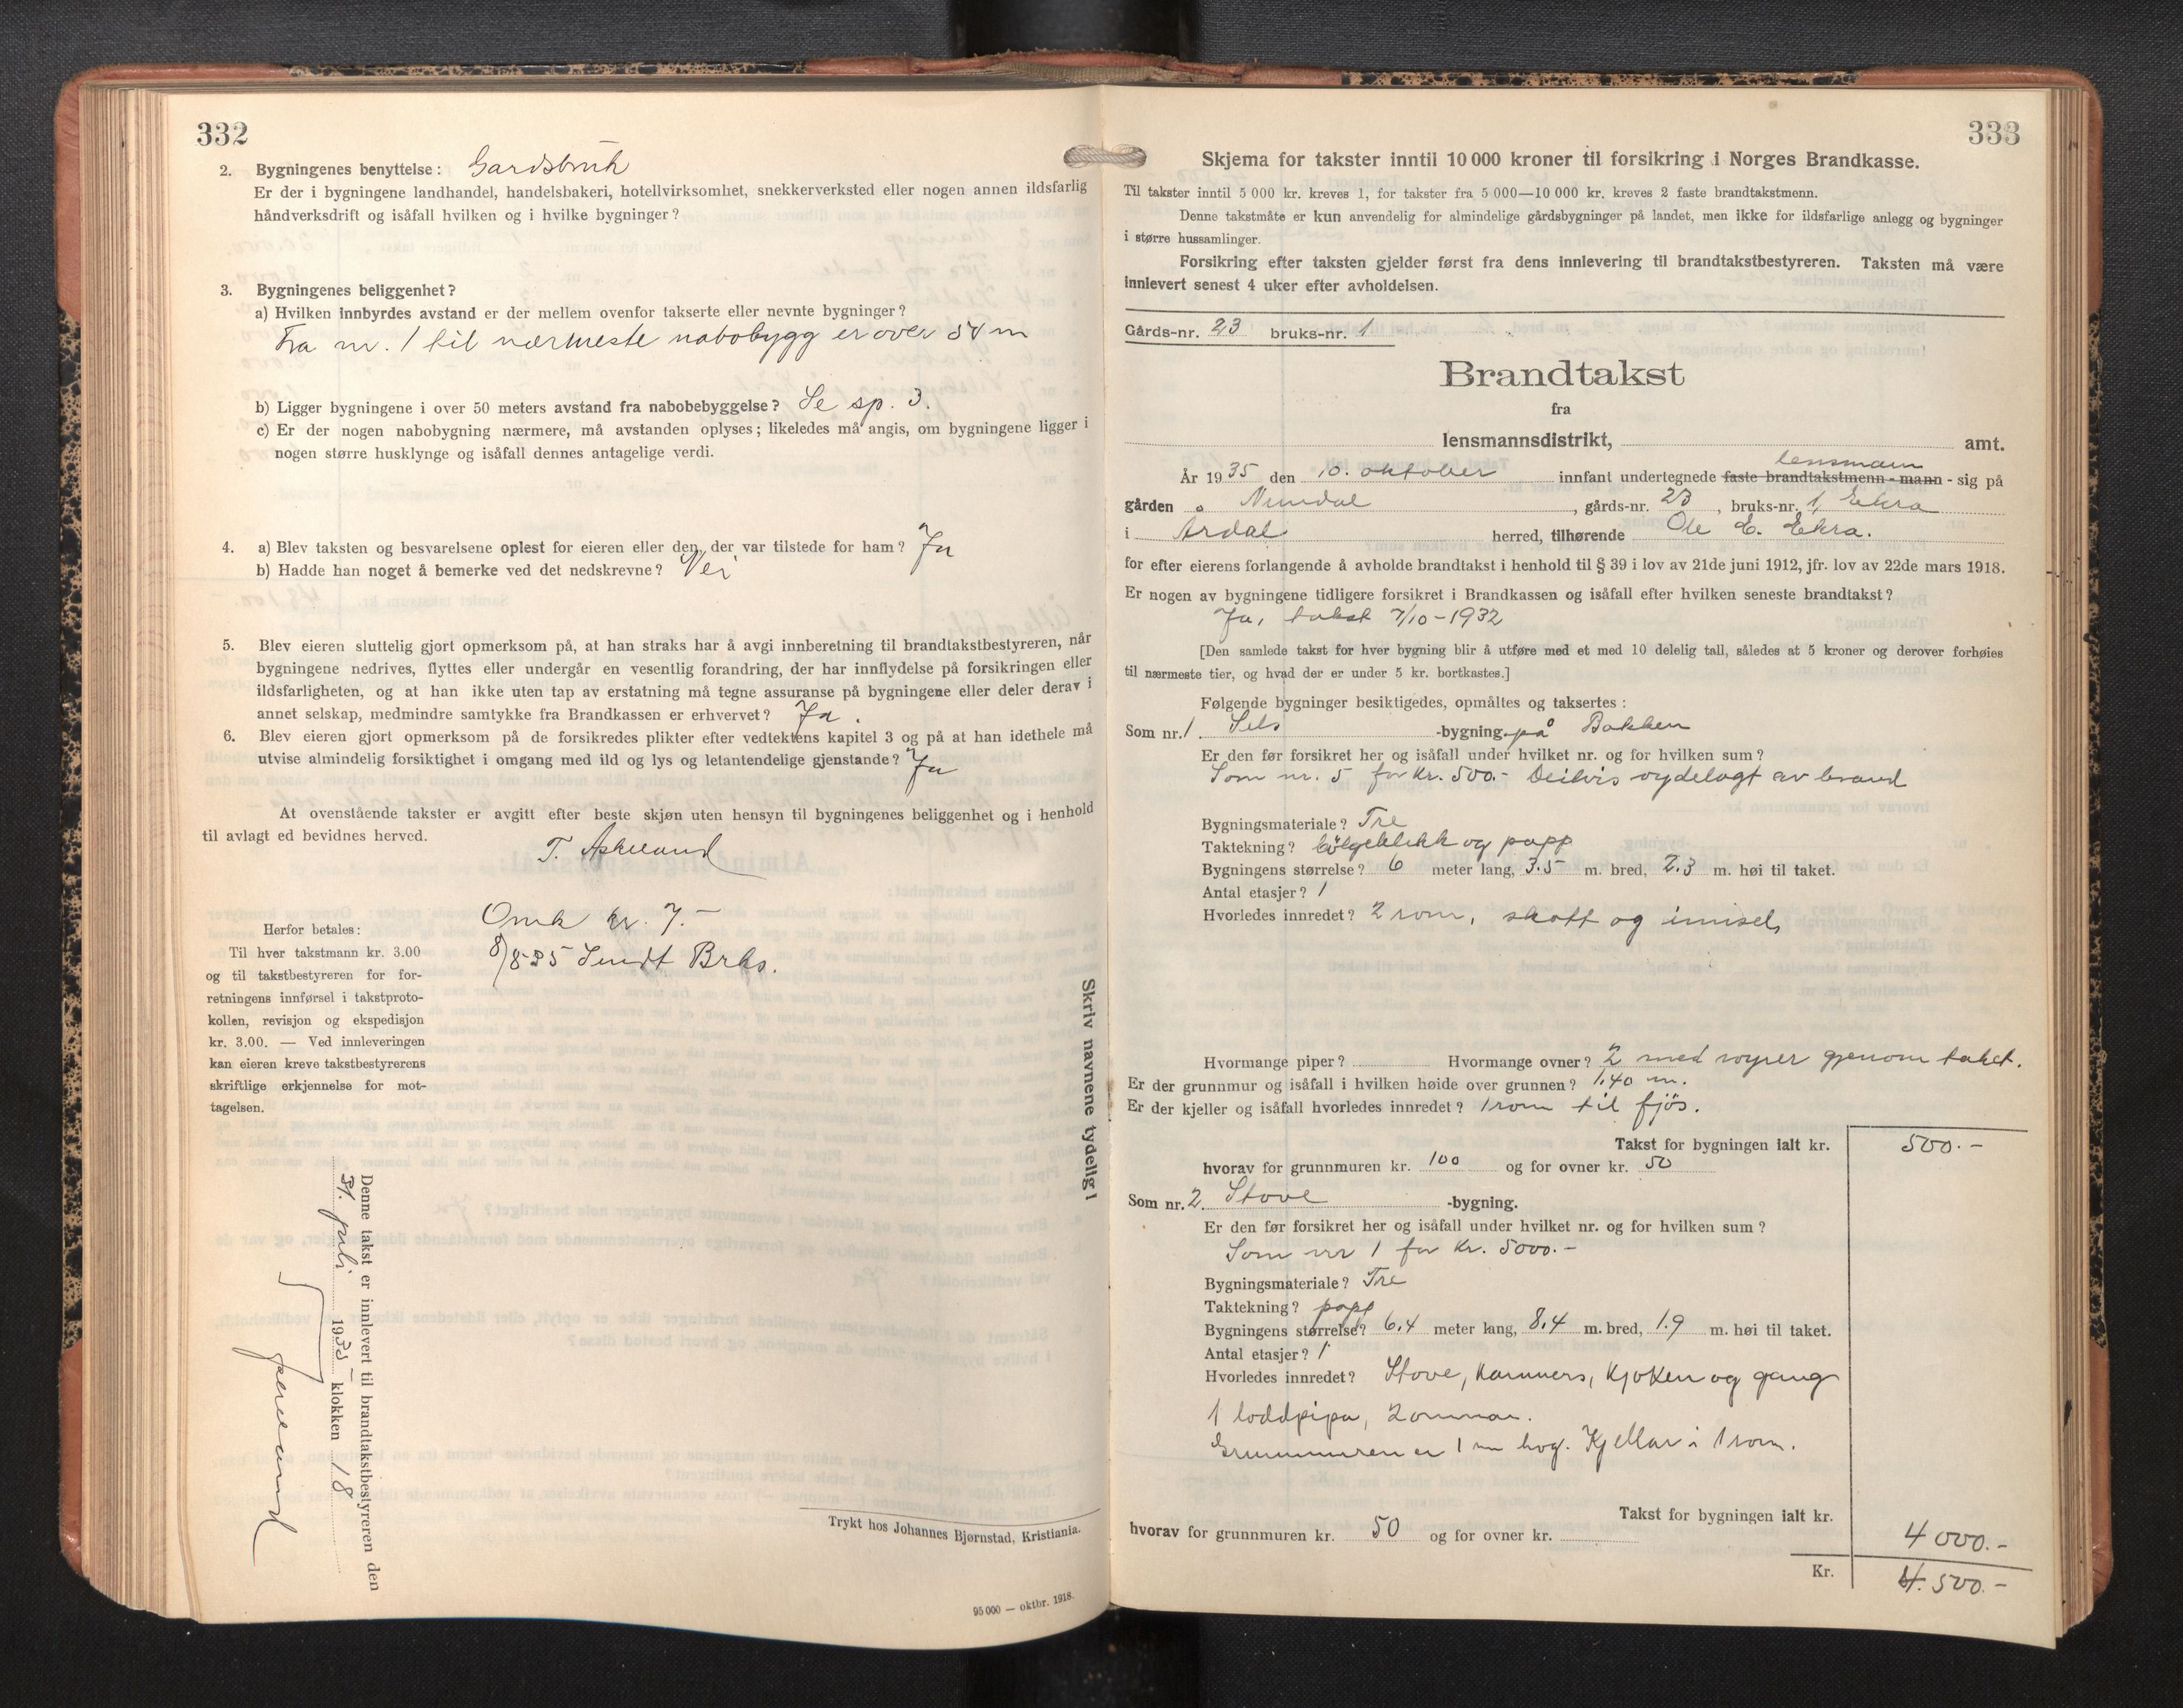 332
2. Bygningenes benyttelse: Gardsbruk
Er der i bygningene landhandel, handelsbakeri, hotellvirksomhet, snekkerverksted eller nogen annen ildsfarlig
håndverksdrift og isåfall hvilken og i hvilke bygninger?
3. Bygningenes beliggenhet?
a) Hvilken innbyrdes avstand er der mellem ovenfor takserte eller nevnte bygninger?
Fra nr. 1 til nærmeste nabobygg er over 50 m
b) Ligger bygningene i over 50 meters avstand fra nabobebyggelse? Se sp. 3.
c) Er der nogen nabobygning nærmere, må avstanden oplyses; likeledes må angis, om bygningene ligger i
nogen større husklynge og isåfall dennes antagelige verdi.
4. a) Blev taksten og besvarelsene oplest for eieren eller den, der var tilstede for ham? Ja
b) Hadde han noget å bemerke ved det nedskrevne? Nei
5. Blev eieren sluttelig gjort opmerksom på, at han straks har å avgi innberetning til brandtakstbestyreren, når
bygningene nedrives, flyttes eller undergår en vesentlig forandring, der har innflydelse på forsikringen eller
ildsfarligheten, og at han ikke uten tap av erstatning må tegne assuranse på bygningene eller deler derav i
annet selskap, medmindre samtykke fra Brandkassen er erhvervet? Ja.
6. Blev eieren gjort opmerksom på de forsikredes plikter efter vedtektens kapitel 3 og på at han idethele må
utvise almindelig forsiktighet i omgang med ild og lys og letantendelige gjenstande? Ja
At ovenstående takster er avgitt efter beste skjøn uten hensyn til bygningenes beliggenhet og i henhold
til avlagt ed bevidnes herved.
T. Askeland
Omk kr. 7.-
8/8-35 Sendt Brks.
Herfor betales:
Til hver takstmann kr. 3.00
og til takstbestyreren for for-
retningens innførsel i takstproto-
kollen, revisjon og ekspedisjon
kr. 3.00. — Ved innleveringen
kan eieren kreve takstbestyrerens
skriftlige erkjennelse for mot-
tagelsen.
Denne takst er innlevert til brandtakstbestyreren den
31. juli 1935 klokken 18
Skriv navnene tydelig!
Trykt hos Johannes Bjørnstad, Kristiania.
95 000 — oktbr. 1918.
333
Skjema for takster inntil 10 000 kroner til forsikring i Norges Brandkasse.
Til takster inntil 5 000 kr. kreves 1, for takster fra 5 000—10 000 kr. kreves 2 faste brandtakstmenn.
Denne takstmåte er kun anvendelig for almindelige gårdsbygninger på landet, men ikke for ildsfarlige anlegg og bygninger
i større hussamlinger.
Forsikring efter taksten gjelder først fra dens innlevering til brandtakstbestyreren. Taksten må være
innlevert senest 4 uker efter avholdelsen.
Gårds-nr. 23 bruks-nr. 1
Brandtakst
fra
lensmannsdistrikt, amt.
lensmann
År 1935 den 10. oktober innfant undertegnede faste brandtakstmenn - mann - sig på
gården Nundal, gårds-nr. 23, bruks-nr. 1, Ekra
i Årdal herred, tilhørende Ole E. Ekra.
for efter eierens forlangende å avholde brandtakst i henhold til § 39 i lov av 21de juni 1912, jfr. lov av 22de mars 1918.
Er nogen av bygningene tidligere forsikret i Brandkassen og isåfall efter hvilken seneste brandtakst?
Ja, takst 7/10-1932
[Den samlede takst for hver bygning blir å utføre med et med 10 delelig tall, således at 5 kroner og derover forhøies
til nærmeste tier, og hvad der er under 5 kr. bortkastes.]
Følgende bygninger besiktigedes, opmåltes og taksertes:
Som nr. 1 Sels -bygning på Bakken
Er den før forsikret her og isåfall under hvilket nr. og for hvilken sum?
Som nr. 5 for kr. 500.- Deilvis øydelagt av brand
Bygningsmateriale? Tre
Taktekning? bölgeblikk og papp
Bygningens størrelse? 6 meter lang, 3.5 m. bred, 2.3 m. høi til taket.
Antal etasjer? 1
Hvorledes innredet? 2 rom, skott og innsel,
Hvormange piper? Hvormange ovner? 2 med røyrer gjenom taket.
Er der grunnmur og isåfall i hvilken høide over grunnen? 1,40 m.
Er der kjeller og isåfall hvorledes innredet? 1 rom til fjös.
Takst for bygningen ialt kr. 500.-
hvorav for grunnmuren kr. 100 og for ovner kr. 50
Som nr. 2 Stove -bygning.
Er den før forsikret her og isåfall under hvilket nr. og for hvilken sum?
Som nr 1 for kr. 5000.-
Bygningsmateriale? Tre
Taktekning? papp
Bygningens størrelse? 6,4 meter lang, 8,4 m. bred, 1.9 m. høi til taket.
Antal etasjer? 1
Hvorledes innredet? Stove, kammers, kjøken og gang
1 loddpipa, 2 omnar.
Grunnmuren er 1 m høg. Kjellar i 1 rom.
Takst for bygningen ialt kr. 4 000.-
hvorav for grunnmuren kr. 50 og for ovner kr.
Kr. 4.500.-